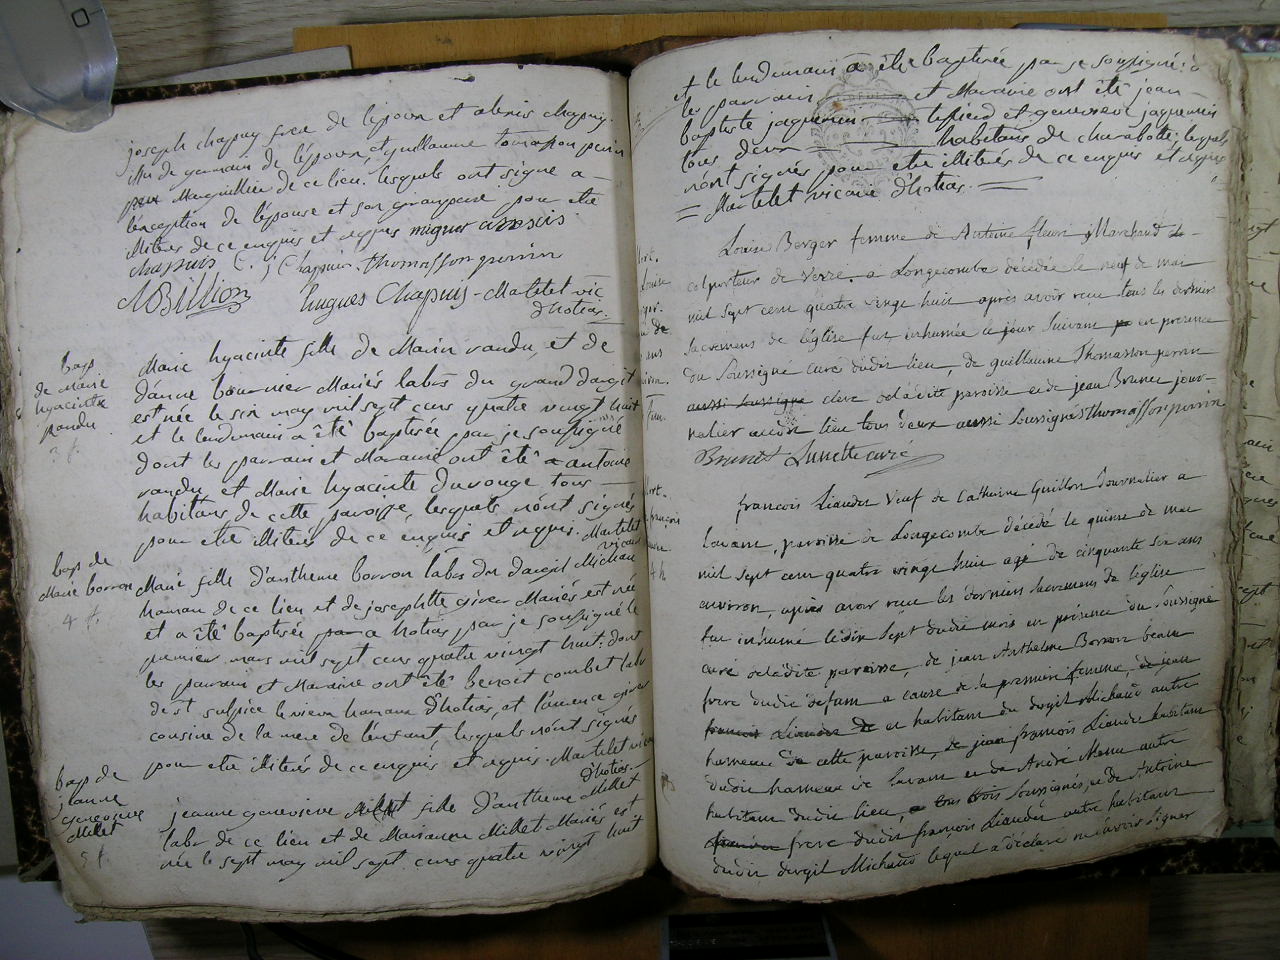 joseph chapuy frere de l'époux et alexis chapuy
issu de germain de l'époux, et guillaume tomasson perrin
Marguillier de ce lieu. lesquels ont signé a
l'exception de l'épouse et son pour etre
illiterés de ce enquis et requis
chapuis C. j Chapuis. thomasson perrin
NBillion hugues Chapuis - Martelet vic
d'hotias.
bap.
de marie
hyacinte
vandu
3 f.
Marie hyacinte fille de Marin vandu, et de
danne bournier Mariés labrs du grand dargit
est née le six may mil sept cens quatre vingt huit
et le lendemain a êtê baptisée par je soussigné
dont les parrain et Maraine ont êtê a antoine
vandu et Marie hyacinte duvonge tous
habitans de cette paroisse, lesquels n'ont signés
pour etre illiterés de ce enquis et requis. Martelet
vicaire
bap. de
Marie borron
4 f.
Marie fille d'anthelme borron labr du dargil Michau
hamau de ce lieu et de josephtte Mariés est née
et a êtê baptisée a hotias par je soussigné le
premier mars mil sept cens quatre vingt huit: dont
les parrain et Maraine ont êtê benoit combet labr
de st sulpice le vieux hamaux d'hotias, et
cousine de la mere de l'enfant, lesquels n'ont signés
pour etre illiterés de ce enquis et requis. Martelet vicaire
d'hotias.
bap. de
jeanne
genevieve
Millet
5 f.
jeanne genevieve fille d'anthelme Millet
labr de ce lieu et de Marianne Millet Mariés est
née le sept may mil sept cens quatre vingt huit
et le lendemain a êtê baptisée par je soussigné:
les parrain et Maraine ont êtê jean
baptiste jaquemin et genevieve jaquemin
tous deux habitans de charabotte; lesquels
n'ont signés pour etre illiterés de ce enquis et requis
= Martelet vicaire d'hotias. =
Louise Berger femme de Antoine fleuri Marchand
colporteur de a Longecombe décédée le neuf de mai
mil sept cent quatre vingt huit après avoir reçu tous les derniers
sacremens de l'église fut inhumée le jour suivant en présence
du soussigné curé dudit lieu, de guillaume Thomasson perrin
aussi soussigné clerc de ladite paroisse et de jean Brunet jour-
nalier audit lieu tous deux aussi soussignés thomasson perrin
Brunet curé
françois Liaudet veuf de Catherine Guillon journalier a
Lavant, paroisse de Longecombe décédé le quinze de mai
mil sept cent quatre vingt huit agé de cinquante six ans
environ, après avoir reçu les derniers sacremens de l'église
fut inhumé le dix sept dudit mois en présence du soussigné
curé de ladite paroisse, de jean Anthelme Borron beau
frere dudit defunt a cause de sa premiere femme, de jean
françois Liaudet de et habitant du dargil Michaud autre
hameau de cette paroisse, de jean françois Liaudet habitant
dudit hameau de Lavant et de André autre
habitant dudit lieu, tous trois soussignés, et de Antoine
frere dudit françois Liaudet autre habitant
dudit dargil Michaud lequel a déclaré ne savoir signer